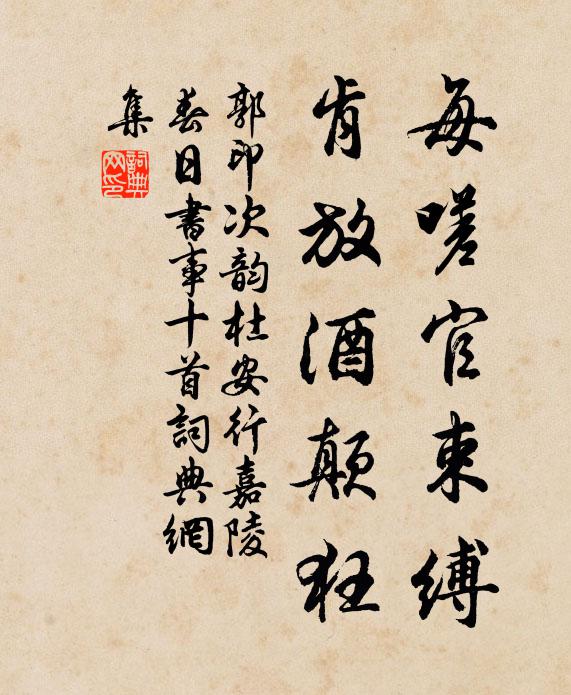 每嗟官束缚
肯放酒颠狂
郭印次韵杜安行嘉陵
春日書事十首詞典網
集
詞典
网印